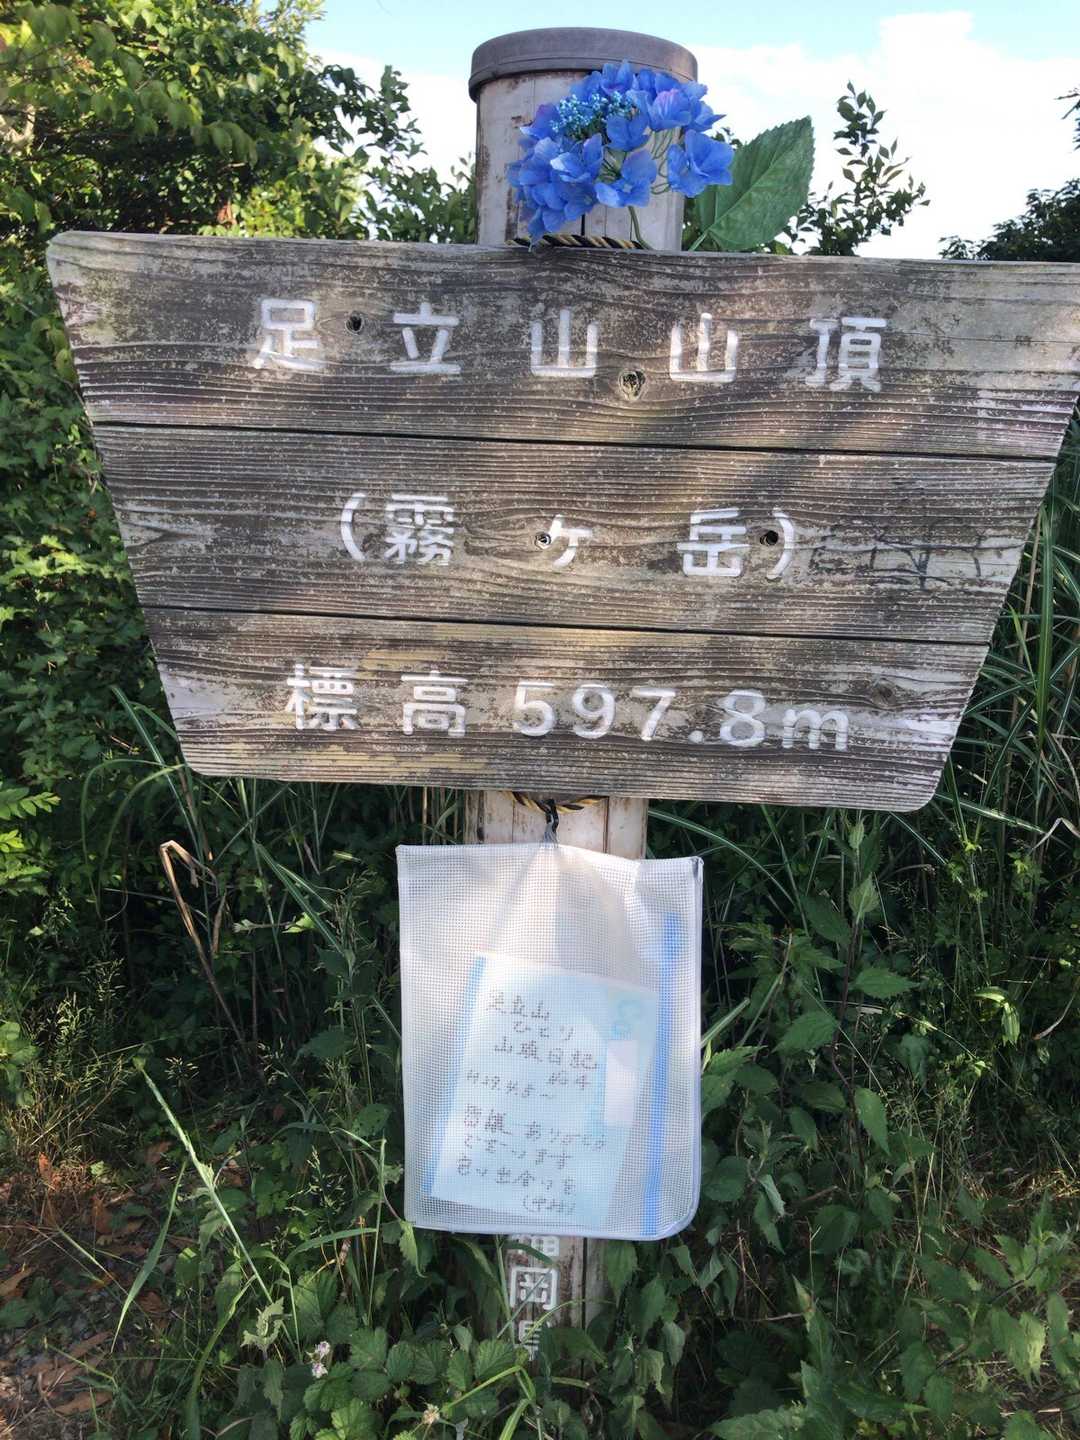 足立山山頂
(霧ヶ岳)
標高597.8m
足立山
ひとり
山頂日記
H29.4.5〜
ありがとう
ございます
福岡県